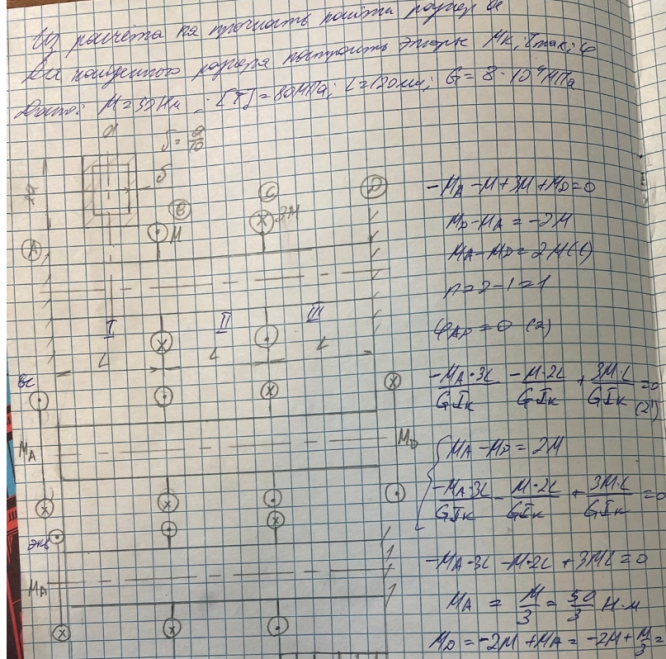 Из расчёта на прочность найти размер a
Для найденного размера построить эпюры Mк; τmax; φ
Дано: M=50Нм; [τ]=80МПа; L=120мм; G=8·10⁴МПа
a
δ=a/10
δ
B
C
D
M
3M
A
I
II
III
L
L
L
ВС
MA
MD
экв
MA
-MA-M+3M+MD=0
MD-MA=-2M
MA-MD=2M(1)
n=2-1=1
φAD=0 (2)
-MA·3L/GIк -M·2L/GIк + 3M·L/GIк =0 (2')
{ MA-MD=2M
-MA·3L/GIк - M·2L/GIк + 3M·L/GIк =0
-MA·3L -M·2L +3ML=0
MA = M/3 = 50/3 Н·м
MD=-2M+MA=-2M+M/3=